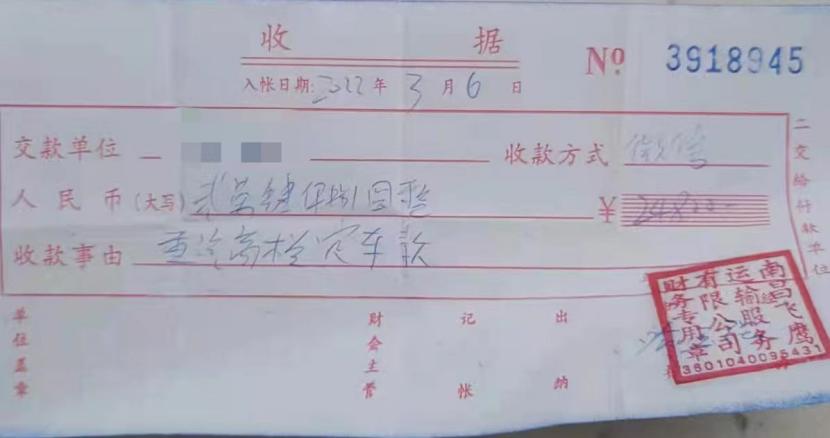 收 据
Nº 3918945
入帐日期:2022年3月6日
交款单位 收款方式 微信
人民币(大写)贰万肆仟捌佰圆整 ¥24800-
收款事由 重汽高栏定车款
二交给付款单位
单位盖章 财会主管 记帐 出纳
南昌飞鹰
运输服务
有限公司
财务专用章
3601040095431